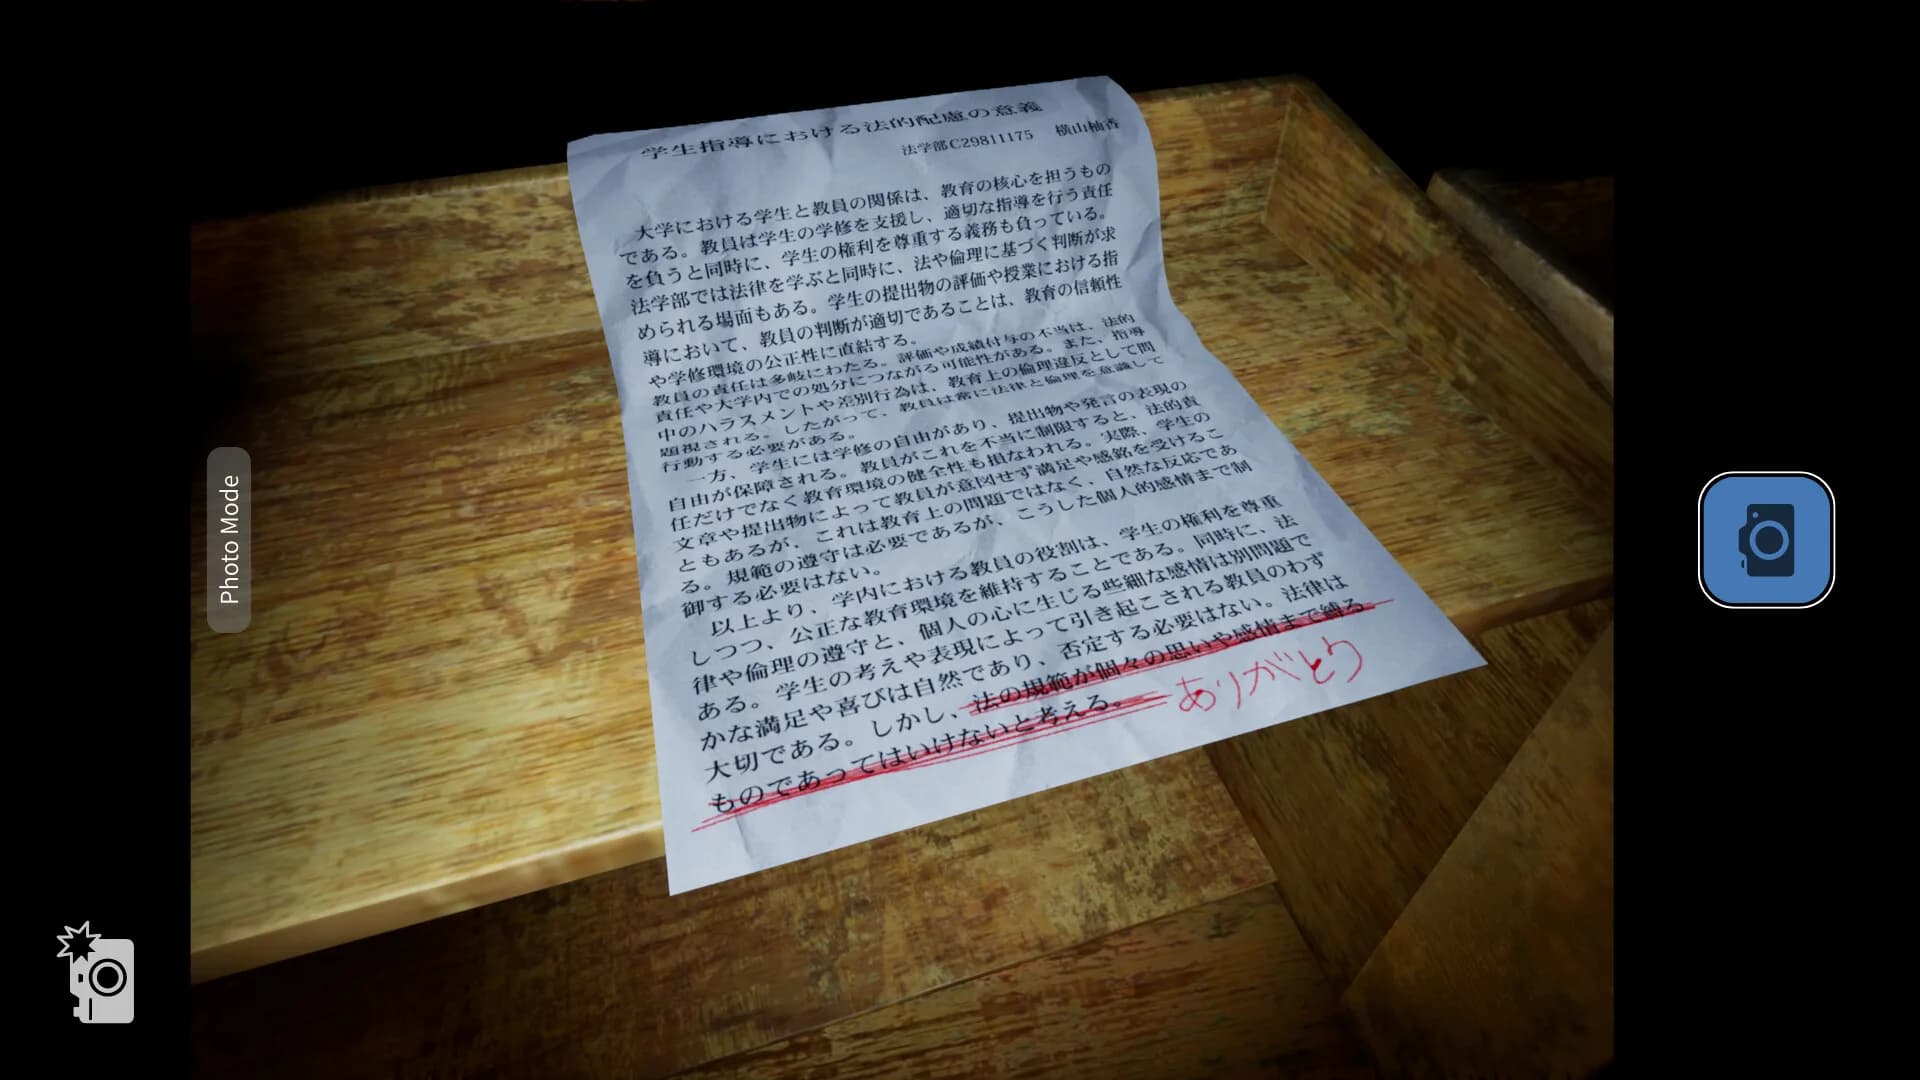 学生指導における法的配慮の意義
法学部C29811175 横山柚香
大学における学生と教員の関係は、教育の核心を担うもの
である。教員は学生の学修を支援し、適切な指導を行う責任
を負うと同時に、学生の権利を尊重する義務も負っている。
法学部では法律を学ぶと同時に、法や倫理に基づく判断が求
められる場面もある。学生の提出物の評価や授業における指
導において、教員の判断が適切であることは、教育の信頼性
や学修環境の公正性に直結する。
教員の責任は多岐にわたる。評価や成績付与の不当は、法的
責任や大学内での処分につながる可能性がある。また、指導
中のハラスメントや差別行為は、教育上の倫理違反として問
題視される。したがって、教員は常に法律と倫理を意識して
行動する必要がある。
一方、学生には学修の自由があり、提出物や発言の表現の
自由が保障される。教員がこれを不当に制限すると、法的責
任だけでなく教育環境の健全性も損なわれる。実際、学生の
文章や提出物によって教員が意図せず満足や感銘を受けるこ
ともあるが、これは教育上の問題ではなく、自然な反応であ
る。規範の遵守は必要であるが、こうした個人的感情まで制
御する必要はない。
以上より、学内における教員の役割は、学生の権利を尊重
しつつ、公正な教育環境を維持することである。同時に、法
律や倫理の遵守と、個人の心に生じる些細な感情は別問題で
ある。学生の考えや表現によって引き起こされる教員のわず
かな満足や喜びは自然であり、否定する必要はない。法律は
大切である。しかし、法の規範が個々の思いや感情まで縛る
ものであってはいけないと考える。
ありがとう
Photo Mode